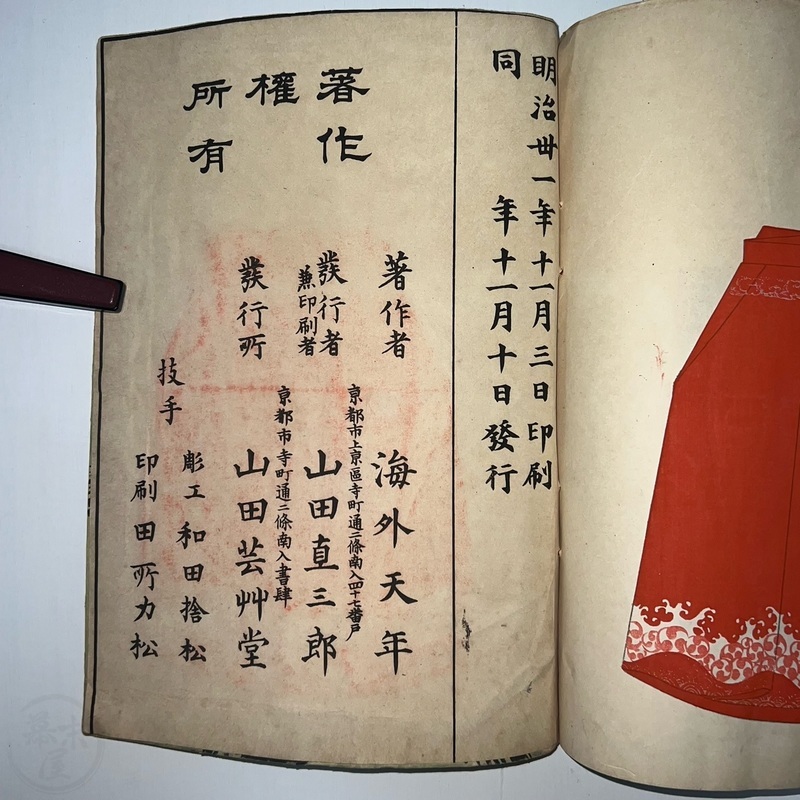 明治丗一年十一月三日印刷
同年十一月十日發行
著作
權
所有
著作者 海外天年
京都市上京區寺町通二條南入四十七番戸
發行者 山田直三郎
兼印刷者
京都市寺町通二條南入書肆
發行所 山田芸艸堂
彫工 和田捨松
技手
印刷 田所力松